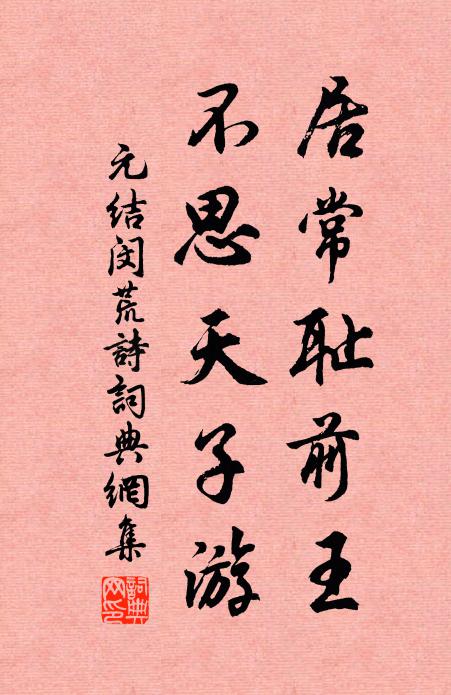 居常耻前王
不思天子游
元结闵荒詩詞典網集
詞典
网印